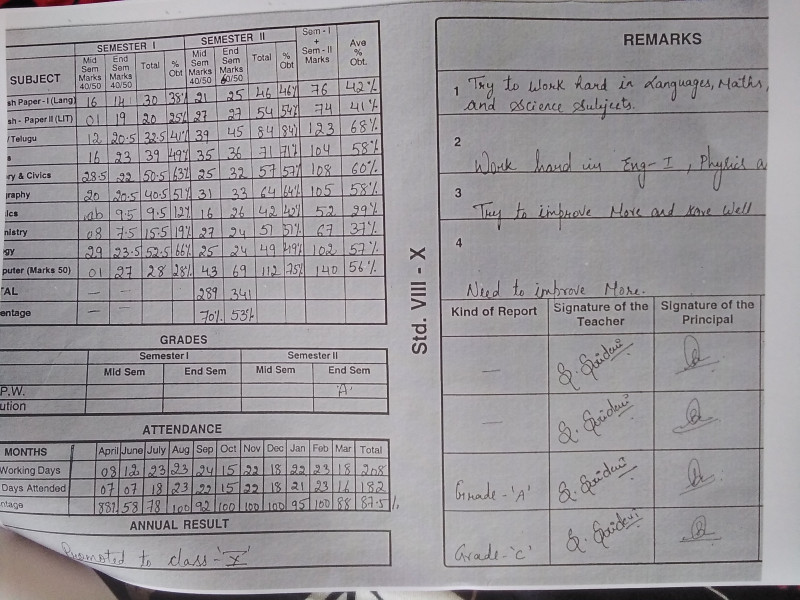 SEMESTER I SEMESTER II Sem - I + Sem - II Marks Ave % Obt.
SUBJECT Mid Sem Marks 40/50 End Sem Marks 40/50 Total % Obt Mid Sem Marks 40/50 End Sem Marks 60/50 Total % Obt
sh Paper - I (Lang) 16 14 30 38% 21 25 46 46% 76 42%
sh - Paper II (LIT) 01 19 20 25% 27 27 54 54% 74 41%
/Telugu 12 20.5 32.5 41% 39 45 84 84% 123 68%
s 16 23 39 49% 35 36 71 71% 104 58%
ry & Civics 28.5 22 50.5 63% 25 32 57 57% 108 60%
graphy 20 20.5 40.5 51% 31 33 64 64% 105 58%
ics ab 9.5 9.5 12% 16 26 42 42% 52 29%
nistry 08 7.5 15.5 19% 27 24 51 51% 67 37%
gy 29 23.5 52.5 66% 25 24 49 49% 102 57%
puter (Marks 50) 01 27 28 28% 43 69 112 75% 140 56%
AL — — 289 341
entage — — 70% 53%
GRADES
Semester I Semester II
Mid Sem End Sem Mid Sem End Sem
P.W. 'A'
ution
ATTENDANCE
MONTHS April June July Aug Sep Oct Nov Dec Jan Feb Mar Total
Working Days 08 12 23 23 24 15 22 18 22 23 18 208
Days Attended 07 07 18 23 22 15 22 18 21 23 16 182
ntage 88% 58 78 100 92 100 100 100 95 100 88 87.5%
ANNUAL RESULT
Promoted to class - 'X'
Std. VIII - X
REMARKS
1 Try to work hard in Languages, Maths,
and Science subjects.
2
Work hard in Eng-I, Physics a
3
Try to improve More and score well
4
Need to improve More.
Kind of Report Signature of the Teacher Signature of the Principal
—
—
Grade - 'A'
Grade - 'C'